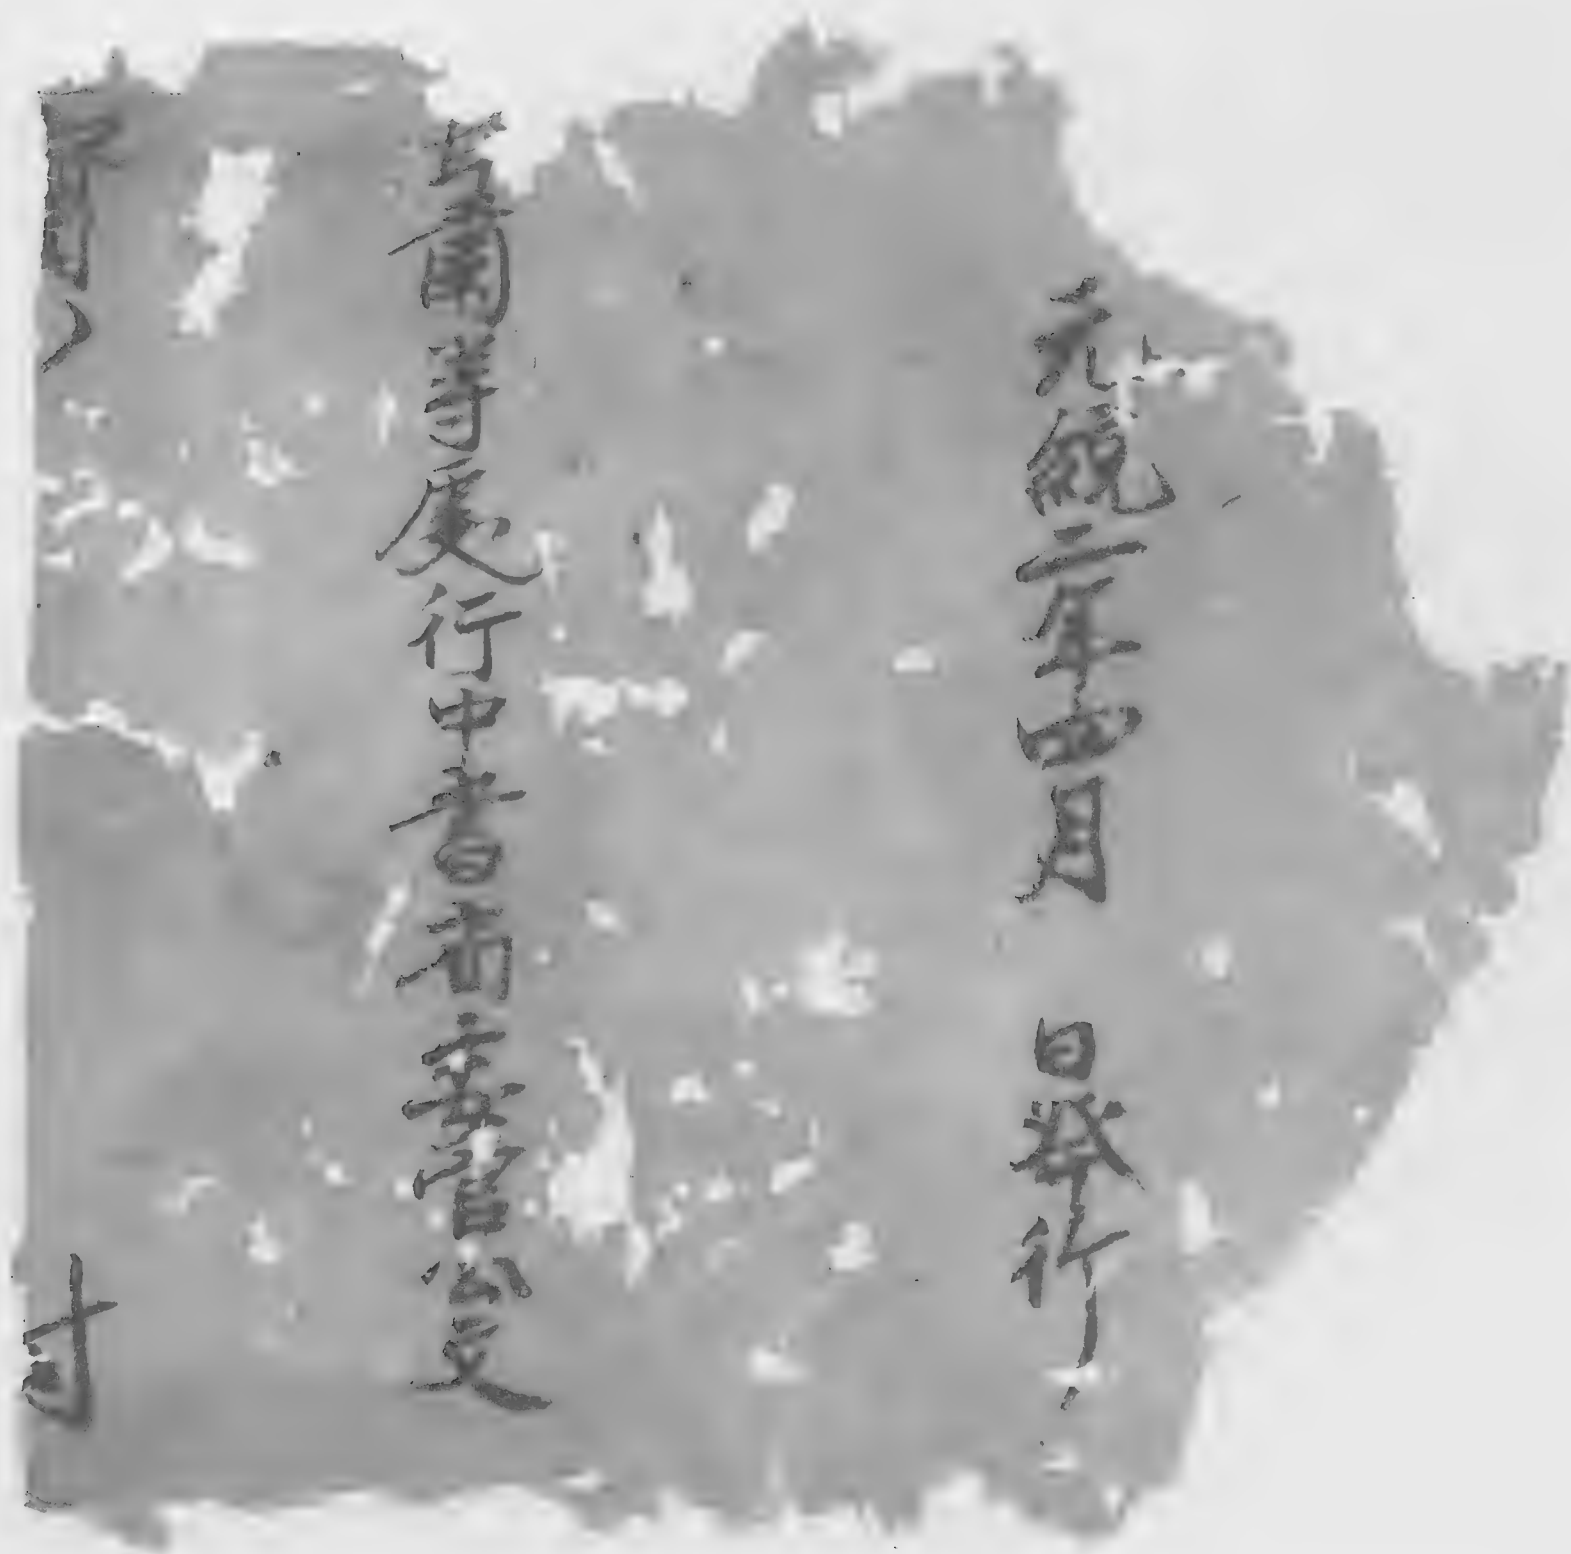 元統二年四月 日發行
甘肅等處行中書省委官公文